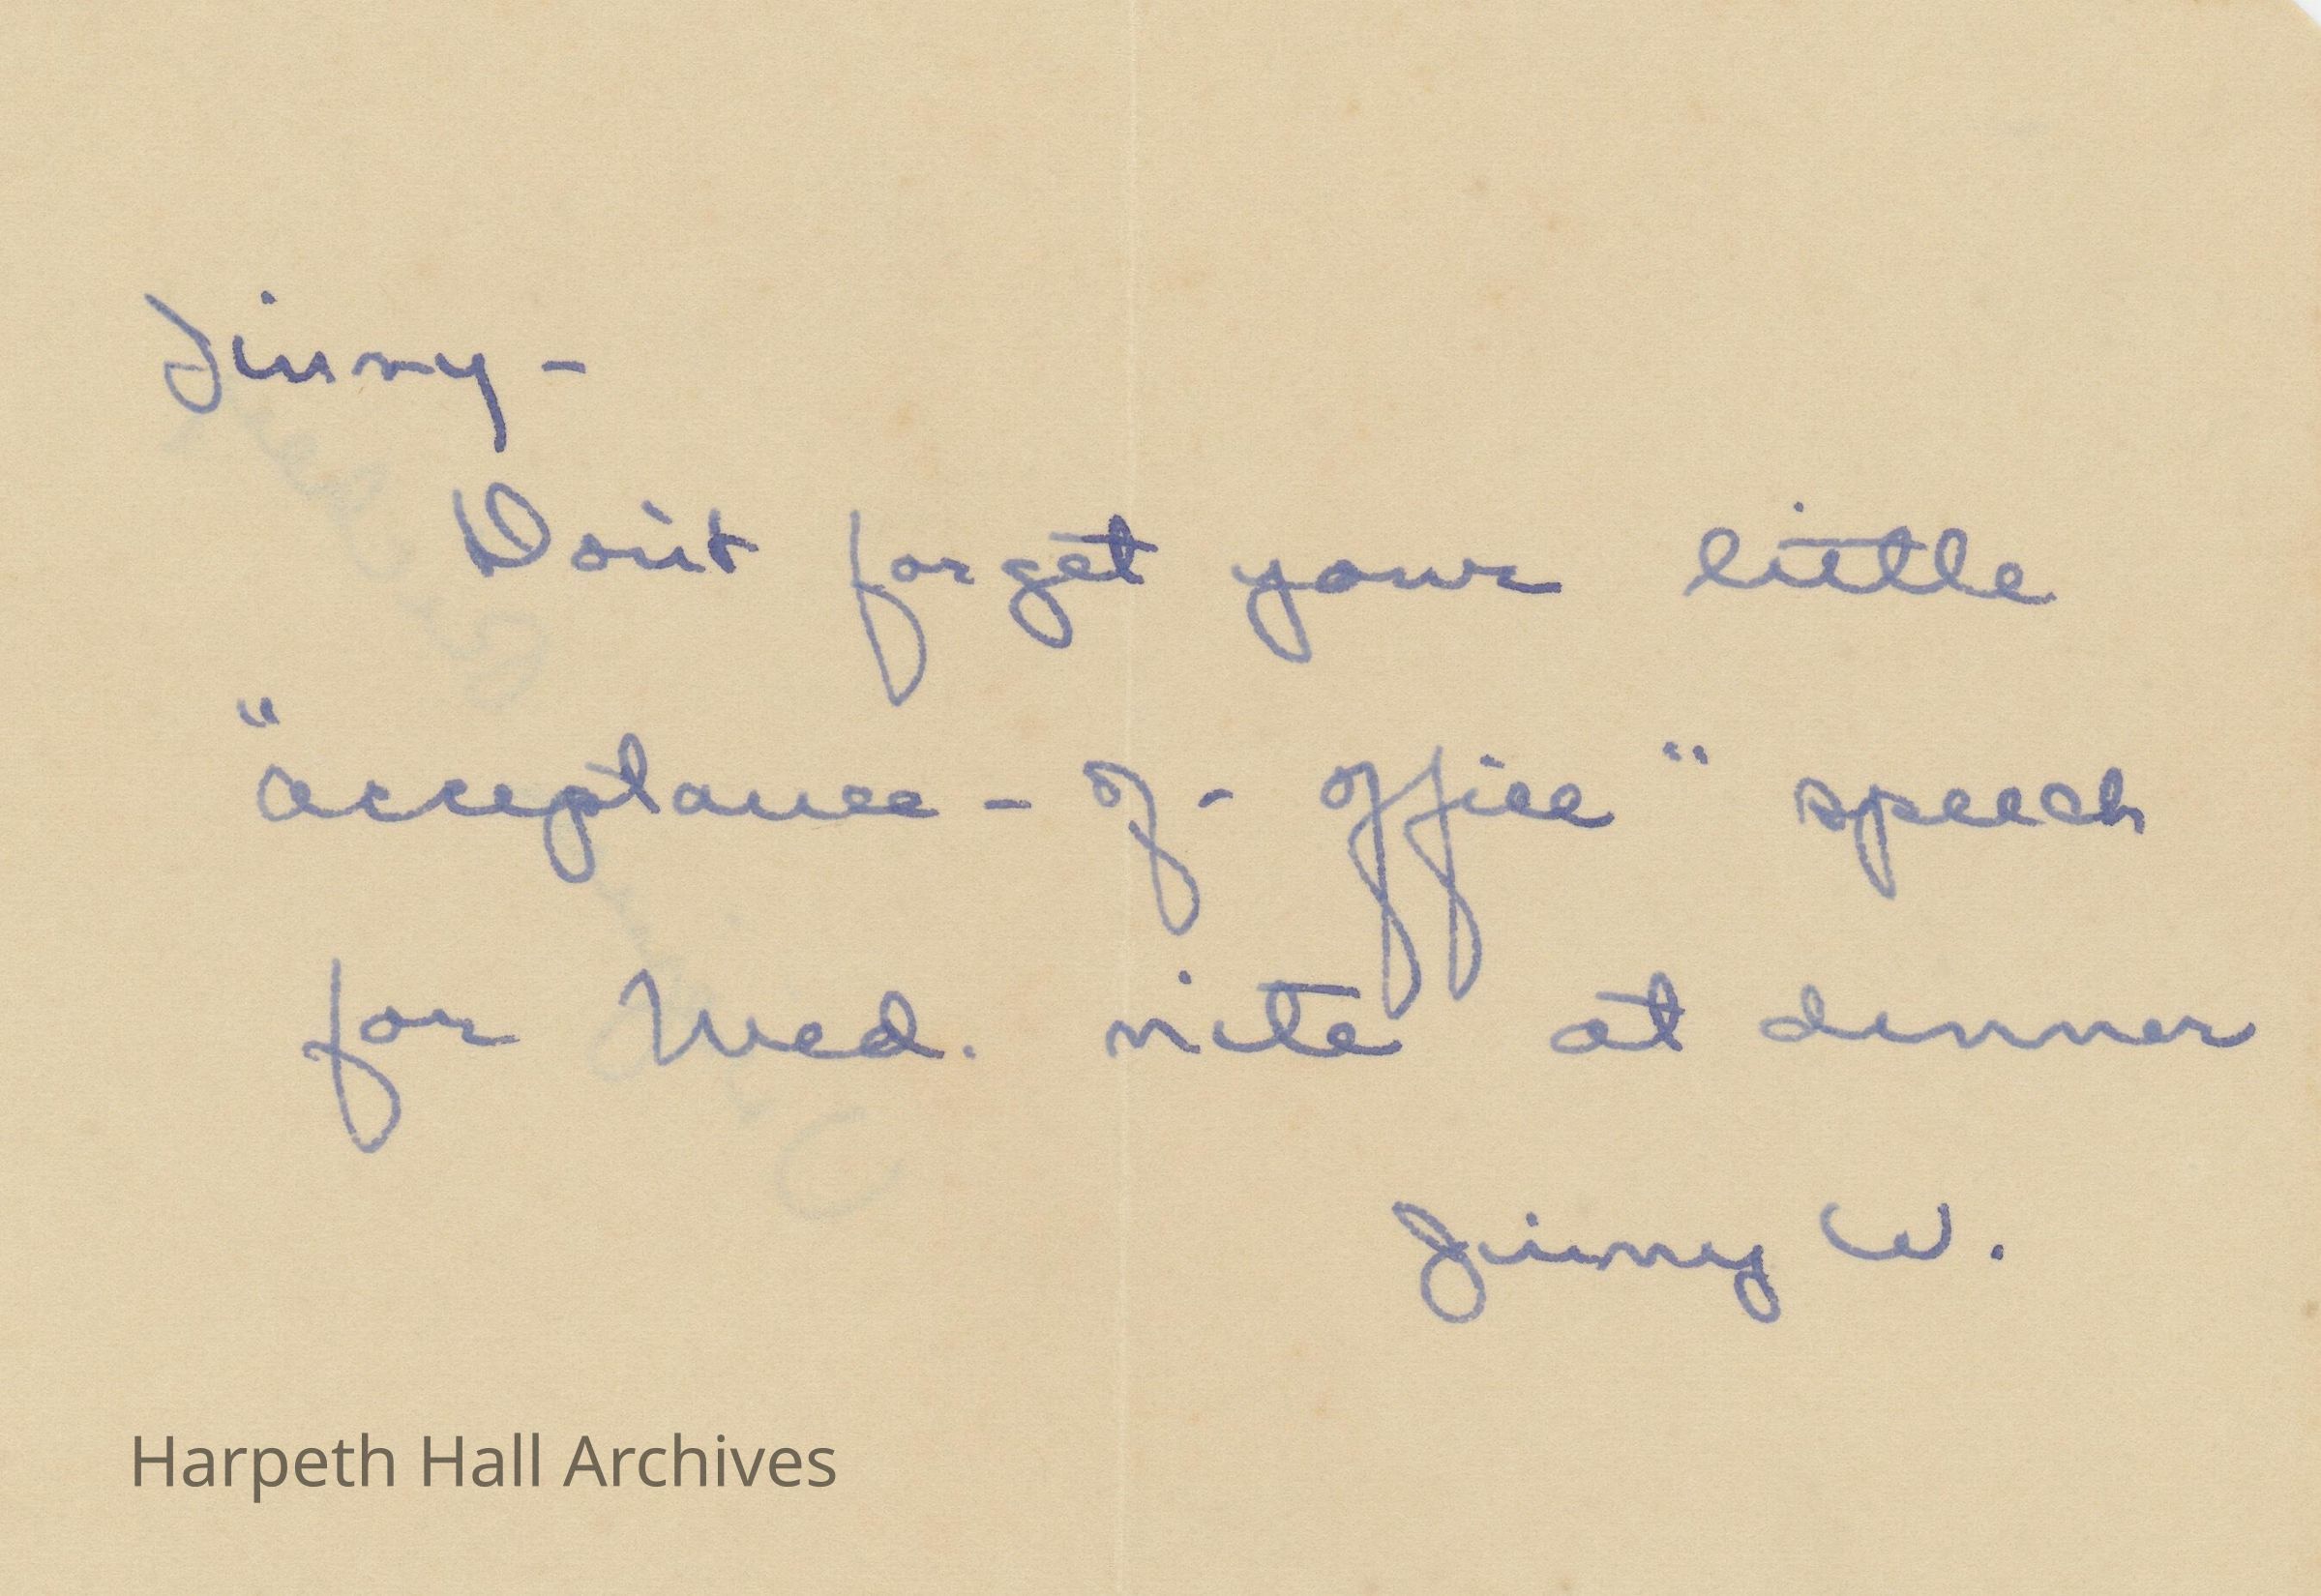 Jinny -
Don't forget your little
"acceptance - of - office" speech
for Wed. nite at dinner
Jinny W.
Harpeth Hall Archives